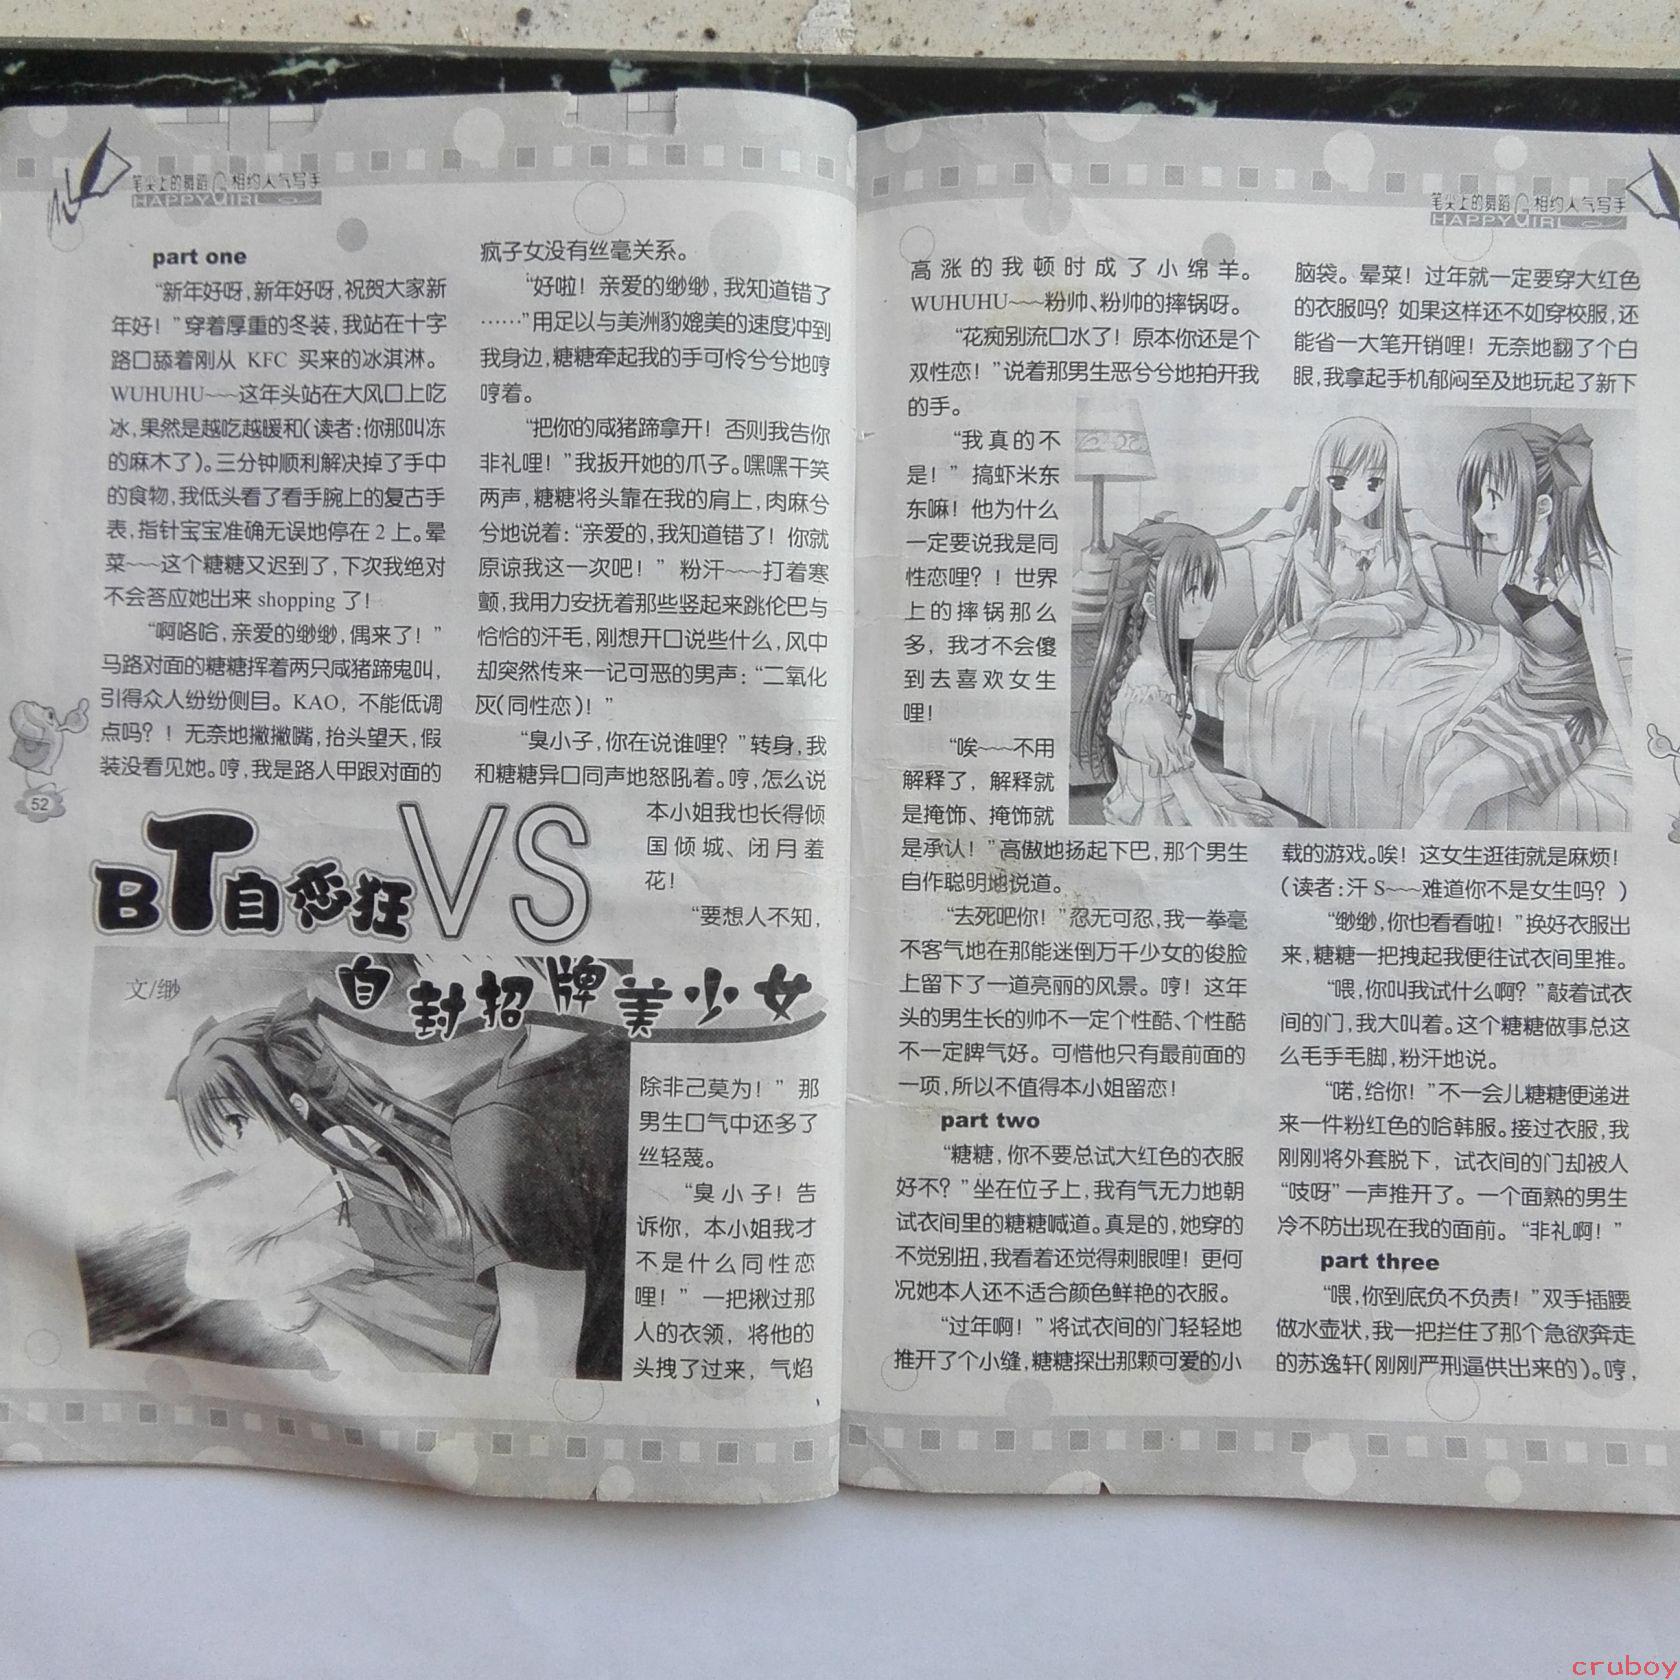 笔尖上的舞蹈 相约人气写手
HAPPYGIRL
part one
“新年好呀,新年好呀,祝贺大家新
年好！”穿着厚重的冬装,我站在十字
路口舔着刚从 KFC 买来的冰淇淋。
WUHUHU~~~这年头站在大风口上吃
冰,果然是越吃越暖和(读者:你那叫冻
的麻木了)。三分钟顺利解决掉了手中
的食物,我低头看了看手腕上的复古手
表,指针宝宝准确无误地停在 2 上。晕
菜~~~这个糖糖又迟到了,下次我绝对
不会答应她出来 shopping 了！
“啊咯哈,亲爱的缈缈,偶来了！”
马路对面的糖糖挥着两只咸猪蹄鬼叫,
引得众人纷纷侧目。KAO，不能低调
点吗？！无奈地撇撇嘴,抬头望天,假
装没看见她。哼,我是路人甲跟对面的
疯子女没有丝毫关系。
“好啦！亲爱的缈缈,我知道错了
……”用足以与美洲豹媲美的速度冲到
我身边,糖糖牵起我的手可怜兮兮地哼
哼着。
“把你的咸猪蹄拿开！否则我告你
非礼哩！”我扳开她的爪子。嘿嘿干笑
两声,糖糖将头靠在我的肩上,肉麻兮
兮地说着:“亲爱的,我知道错了！你就
原谅我这一次吧！”粉汗~~~打着寒
颤,我用力安抚着那些竖起来跳伦巴与
恰恰的汗毛,刚想开口说些什么,风中
却突然传来一记可恶的男声:“二氧化
灰(同性恋)！”
“臭小子,你在说谁哩？”转身,我
和糖糖异口同声地怒吼着。哼,怎么说
本小姐我也长得倾
国倾城、闭月羞
花！
“要想人不知,
BT自恋狂VS
自封招牌美少女
文/缈
除非己莫为！”那
男生口气中还多了
丝轻蔑。
“臭小子！告
诉你，本小姐我才
不是什么同性恋
哩！”一把揪过那
人的衣领，将他的
头拽了过来，气焰
52
笔尖上的舞蹈 相约人气写手
HAPPYGIRL
高涨的我顿时成了小绵羊。
WUHUHU~~~粉帅、粉帅的摔锅呀。
“花痴别流口水了！原本你还是个
双性恋！”说着那男生恶兮兮地拍开我
的手。
“我真的不
是！”搞虾米东
东嘛！他为什么
一定要说我是同
性恋哩？！世界
上的摔锅那么
多，我才不会傻
到去喜欢女生
哩！
“唉~~~不用
解释了，解释就
是掩饰、掩饰就
是承认！”高傲地扬起下巴,那个男生
自作聪明地说道。
“去死吧你！”忍无可忍,我一拳毫
不客气地在那能迷倒万千少女的俊脸
上留下了一道亮丽的风景。哼！这年
头的男生长的帅不一定个性酷、个性酷
不一定脾气好。可惜他只有最前面的
一项,所以不值得本小姐留恋！
part two
“糖糖,你不要总试大红色的衣服
好不？”坐在位子上,我有气无力地朝
试衣间里的糖糖喊道。真是的,她穿的
不觉别扭,我看着还觉得刺眼哩！更何
况她本人还不适合颜色鲜艳的衣服。
“过年啊！”将试衣间的门轻轻地
推开了个小缝,糖糖探出那颗可爱的小
脑袋。晕菜！过年就一定要穿大红色
的衣服吗？如果这样还不如穿校服,还
能省一大笔开销哩！无奈地翻了个白
眼,我拿起手机郁闷至及地玩起了新下
载的游戏。唉！这女生逛街就是麻烦！
(读者:汗 S~~~难道你不是女生吗？)
“缈缈,你也看看啦！”换好衣服出
来,糖糖一把拽起我便往试衣间里推。
“喂,你叫我试什么啊？”敲着试衣
间的门,我大叫着。这个糖糖做事总这
么毛手毛脚,粉汗地说。
“喏,给你！”不一会儿糖糖便递进
来一件粉红色的哈韩服。接过衣服,我
刚刚将外套脱下，试衣间的门却被人
“吱呀”一声推开了。一个面熟的男生
冷不防出现在我的面前。“非礼啊！”
part three
“喂,你到底负不负责！”双手插腰
做水壶状,我一把拦住了那个急欲奔走
的苏逸轩(刚刚严刑逼供出来的)。哼,
cruboy